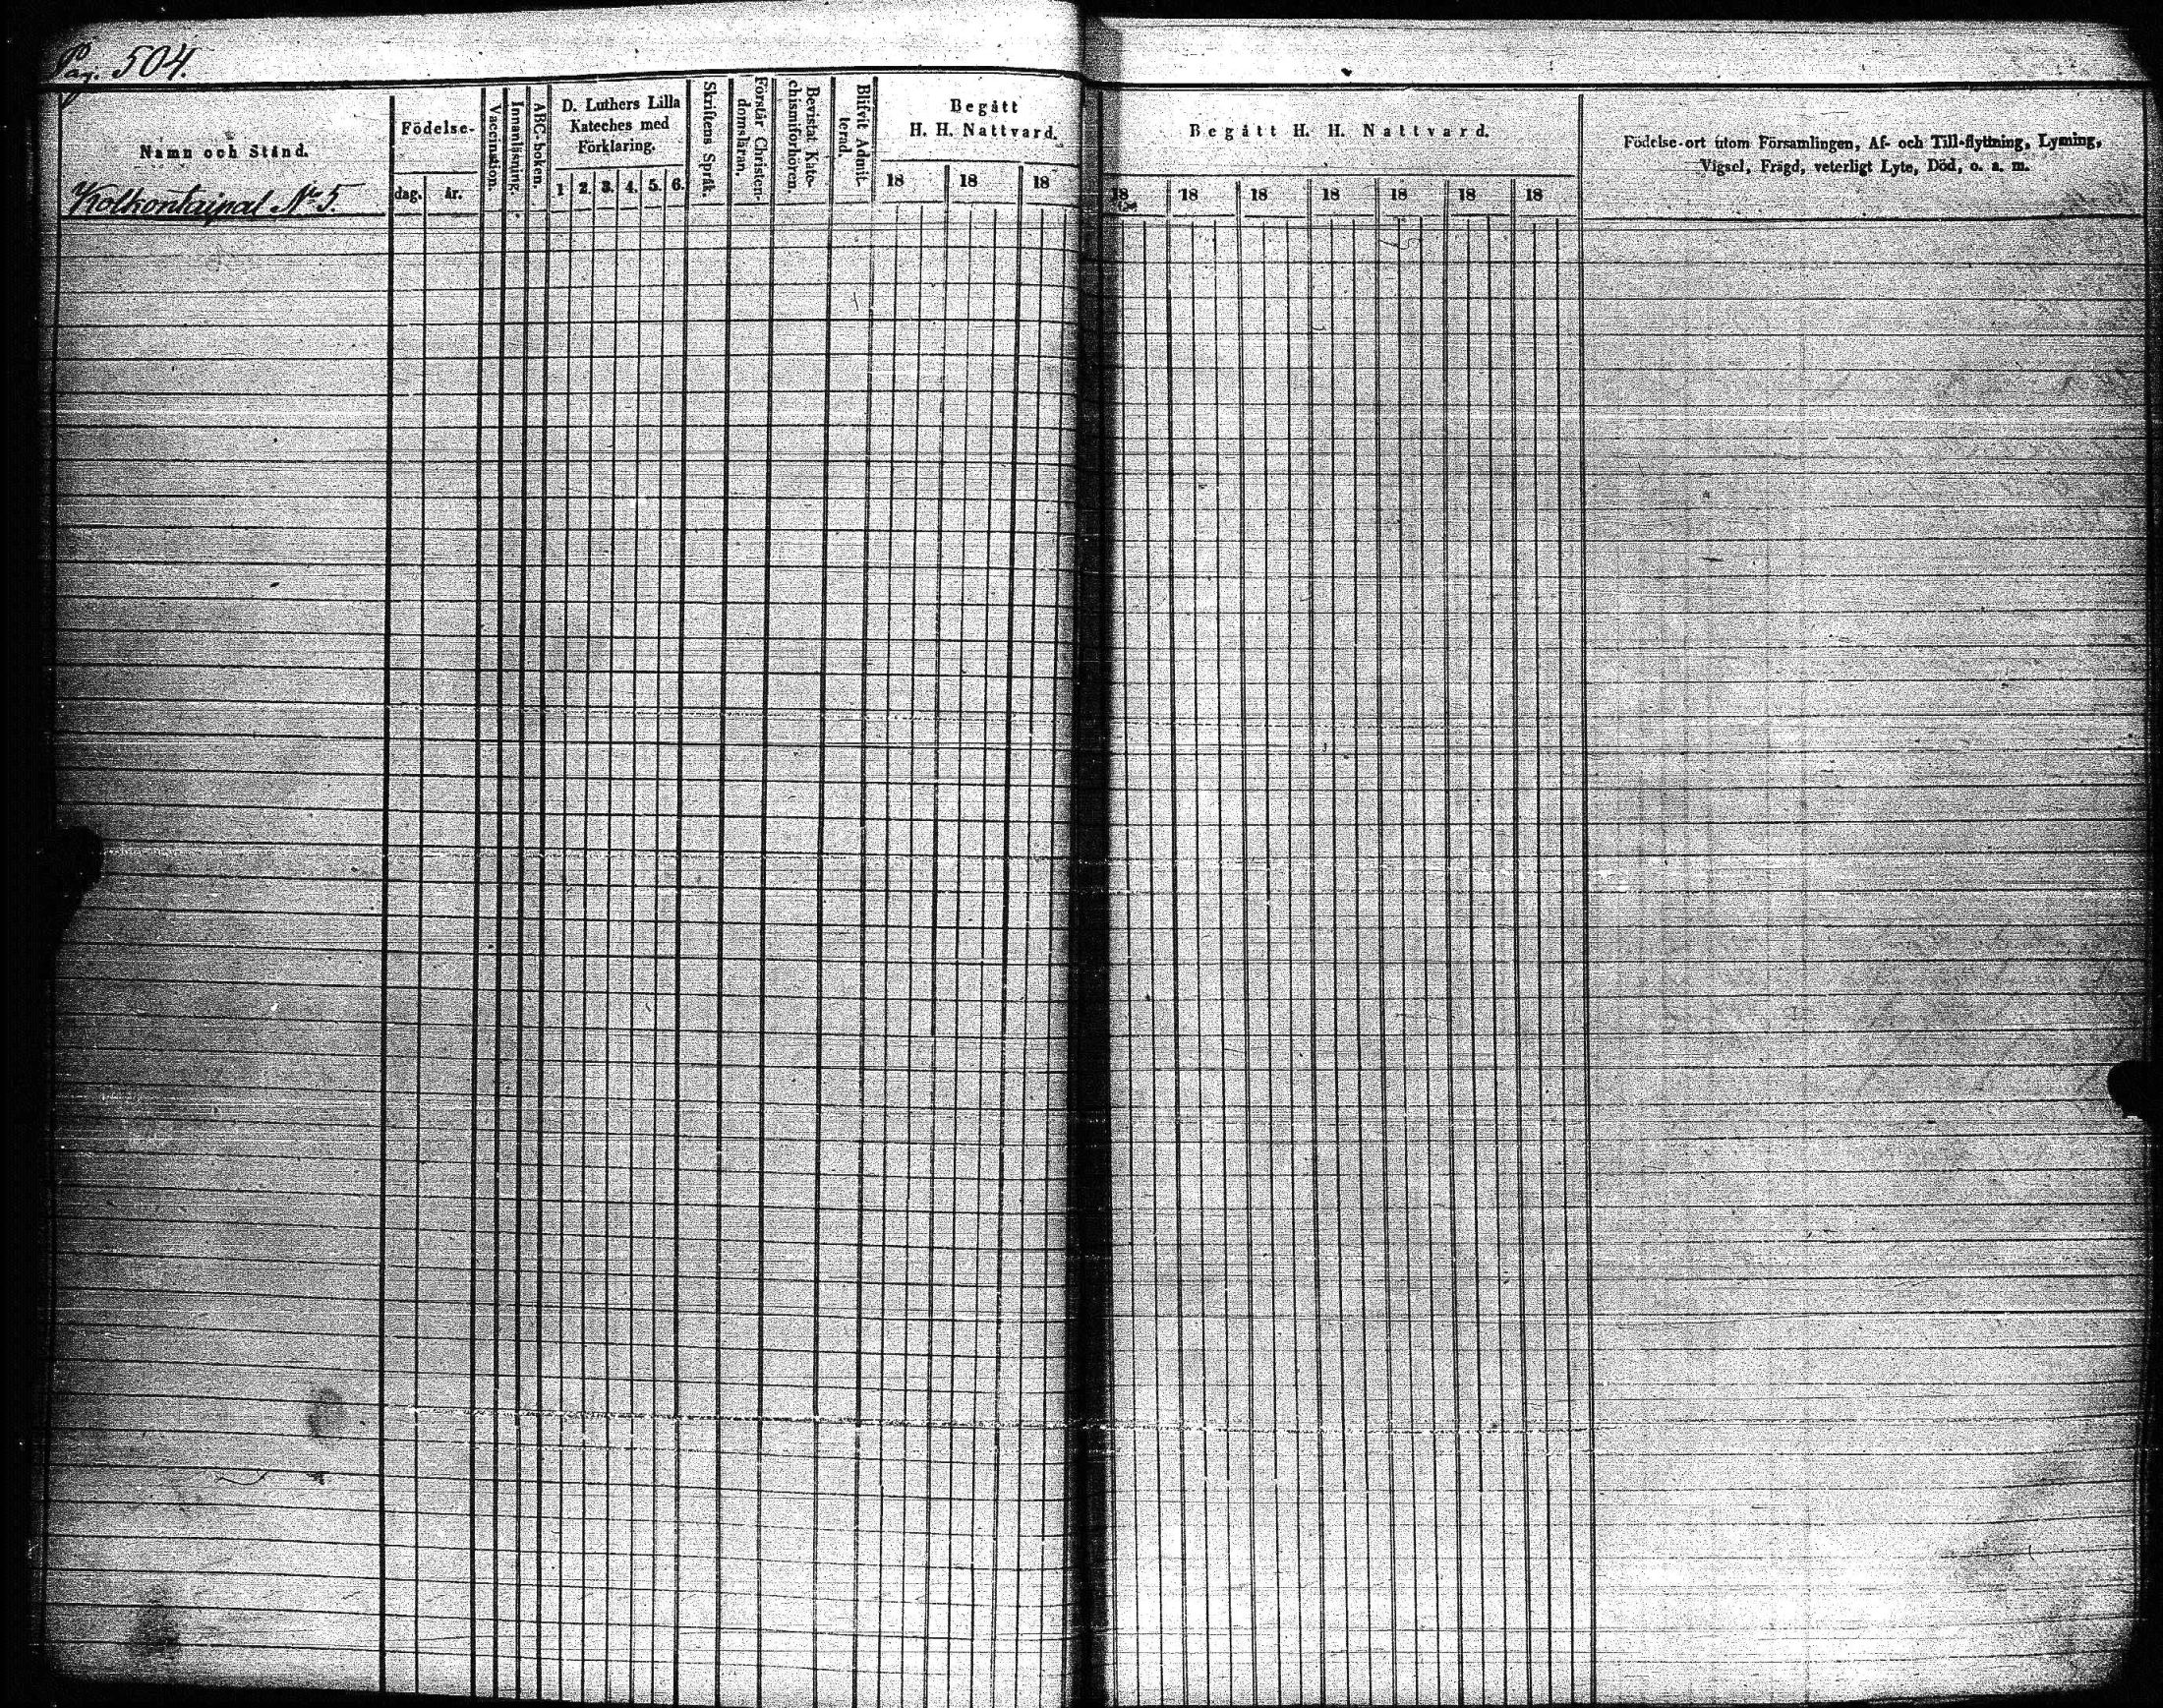 Pag. 504.
Namn och Stånd.
Kolkontaipal No 5.
Födelse-
dag. år.
Vaccination.
Innanläsning.
ABC-boken.
D. Luthers Lilla
Kateches med
Förklaring.
1 2. 3. 4. 5. 6.
Skriftens Språk.
Förstår Christen-
domsläran.
Bevistat Kate-
chismiförhören.
Blifvit Admit-
terad.
Begått
H. H. Nattvard.
18 18 18
Begått H. H. Nattvard.
18 18 18 18 18 18 18
Födelse-ort utom Församlingen, Af- och Till-flyttning, Lysning,
Vigsel, Frägd, veterligt Lyte, Död, o. a. m.